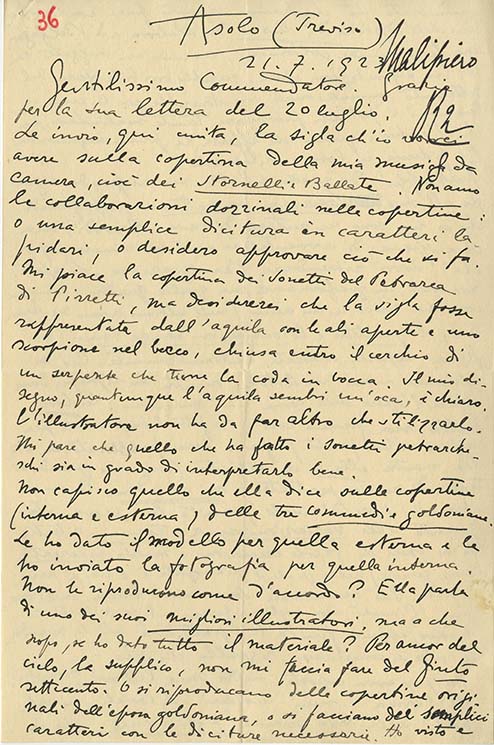 36
Asolo (Treviso)
21.7.1923
Malipiero
Gentilissimo Commendatore. Grazie
per la sua lettera del 20 luglio.
R2
Le invio, qui unita, la sigla ch'io vorrei
avere sulla copertina della mia musica da
camera, cioè dei Stornelli e Ballate. Non amo
le collaborazioni dozzinali nelle copertine:
o una semplice dicitura in caratteri la
pidari, o desidero approvare ciò che si fa.
Mi piace la copertina dei Sonetti del Petrarca
di Pizzetti, ma desidererei che la sigla fosse
rappresentata dall'aquila con le ali aperte e uno
scorpione nel becco, chiusa entro il cerchio di
un serpente che tiene la coda in bocca. Il mio di-
segno, quantunque l'aquila sembri un'oca, è chiaro.
L'illustratore non ha da far altro che stilizzarlo.
Mi pare che quello che ha fatto i sonetti petrarche-
schi sia in grado di interpretarlo bene.
Non capisco quello che ella dice sulle copertine
(interna e esterna) delle tre commedie goldoniane.
Le ho dato il modello per quella esterna e le
ho inviato la fotografia per quella interna.
Non le riproducono come d'accordo? Ella parla
di uno dei suoi migliori illustratori, ma a che
scopo, se ho dato tutto il materiale? Per amor del
cielo, la supplico, non mi faccia fare del finto
settecento. O si riproducano delle copertine origi
nali dell'epoca goldoniana, o si facciano dei semplici
caratteri con le diciture necessarie. Ho visto e